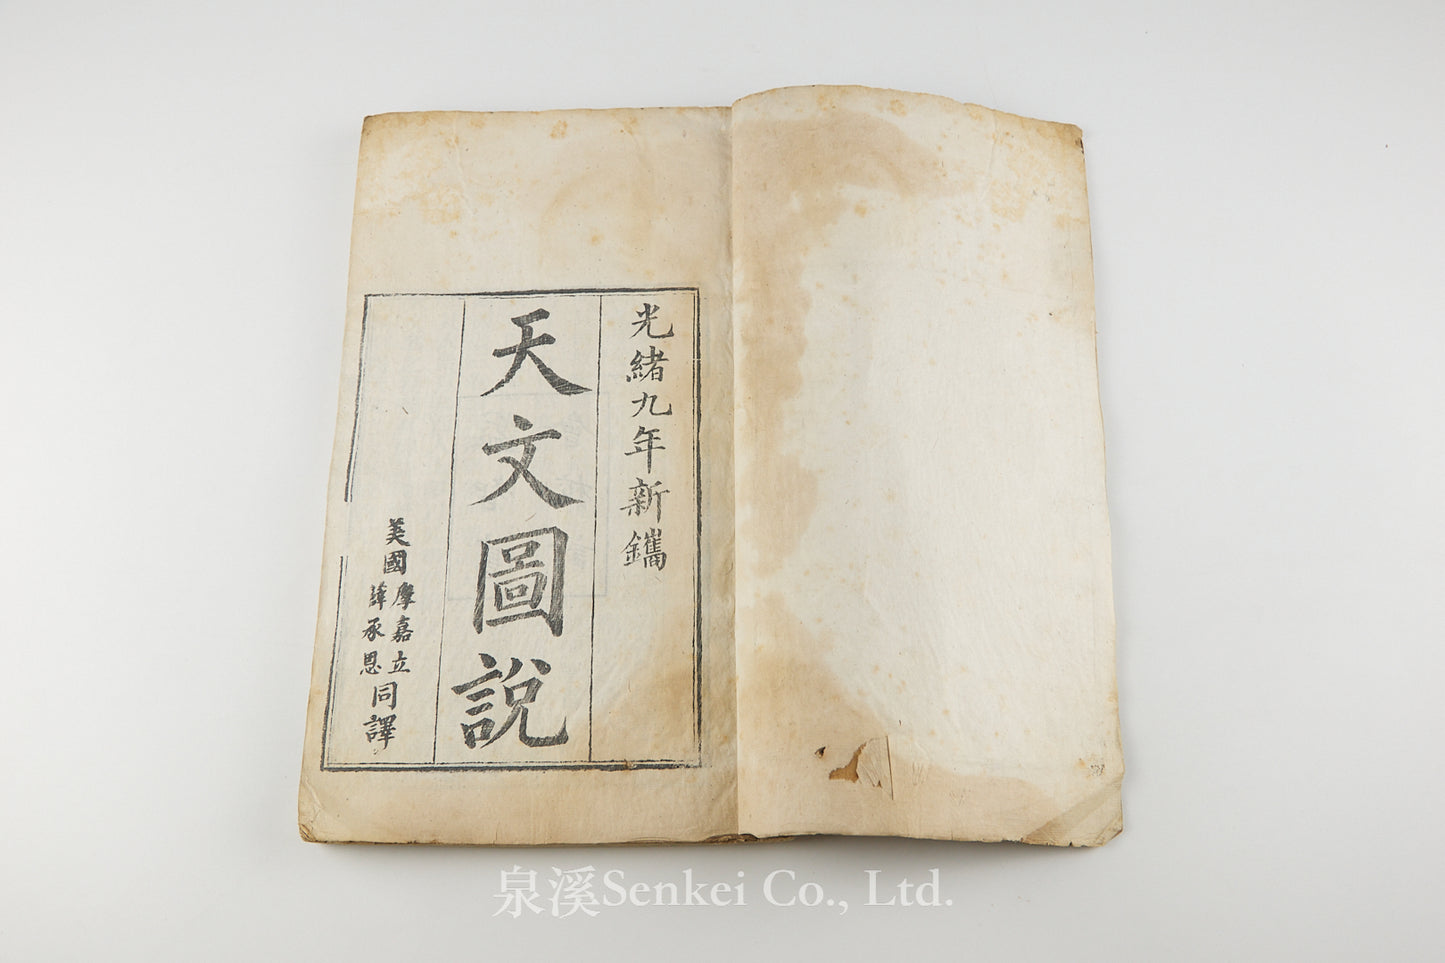 光緒九年新鐫
天文圖說
美國摩嘉立
薛承恩
同譯
泉溪Senkei Co., Ltd.